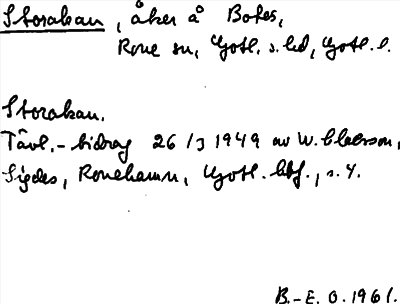 Storakan, åker å Botes,
Rone sn, Gotl. s. hd, Gotl. l.
Storakan.
Tävl.-bidrag 26/3 1949 av W. Claeson,
Sigdes, Ronehamn, Gotl. , s. 4.
B.-E. O. 1961.